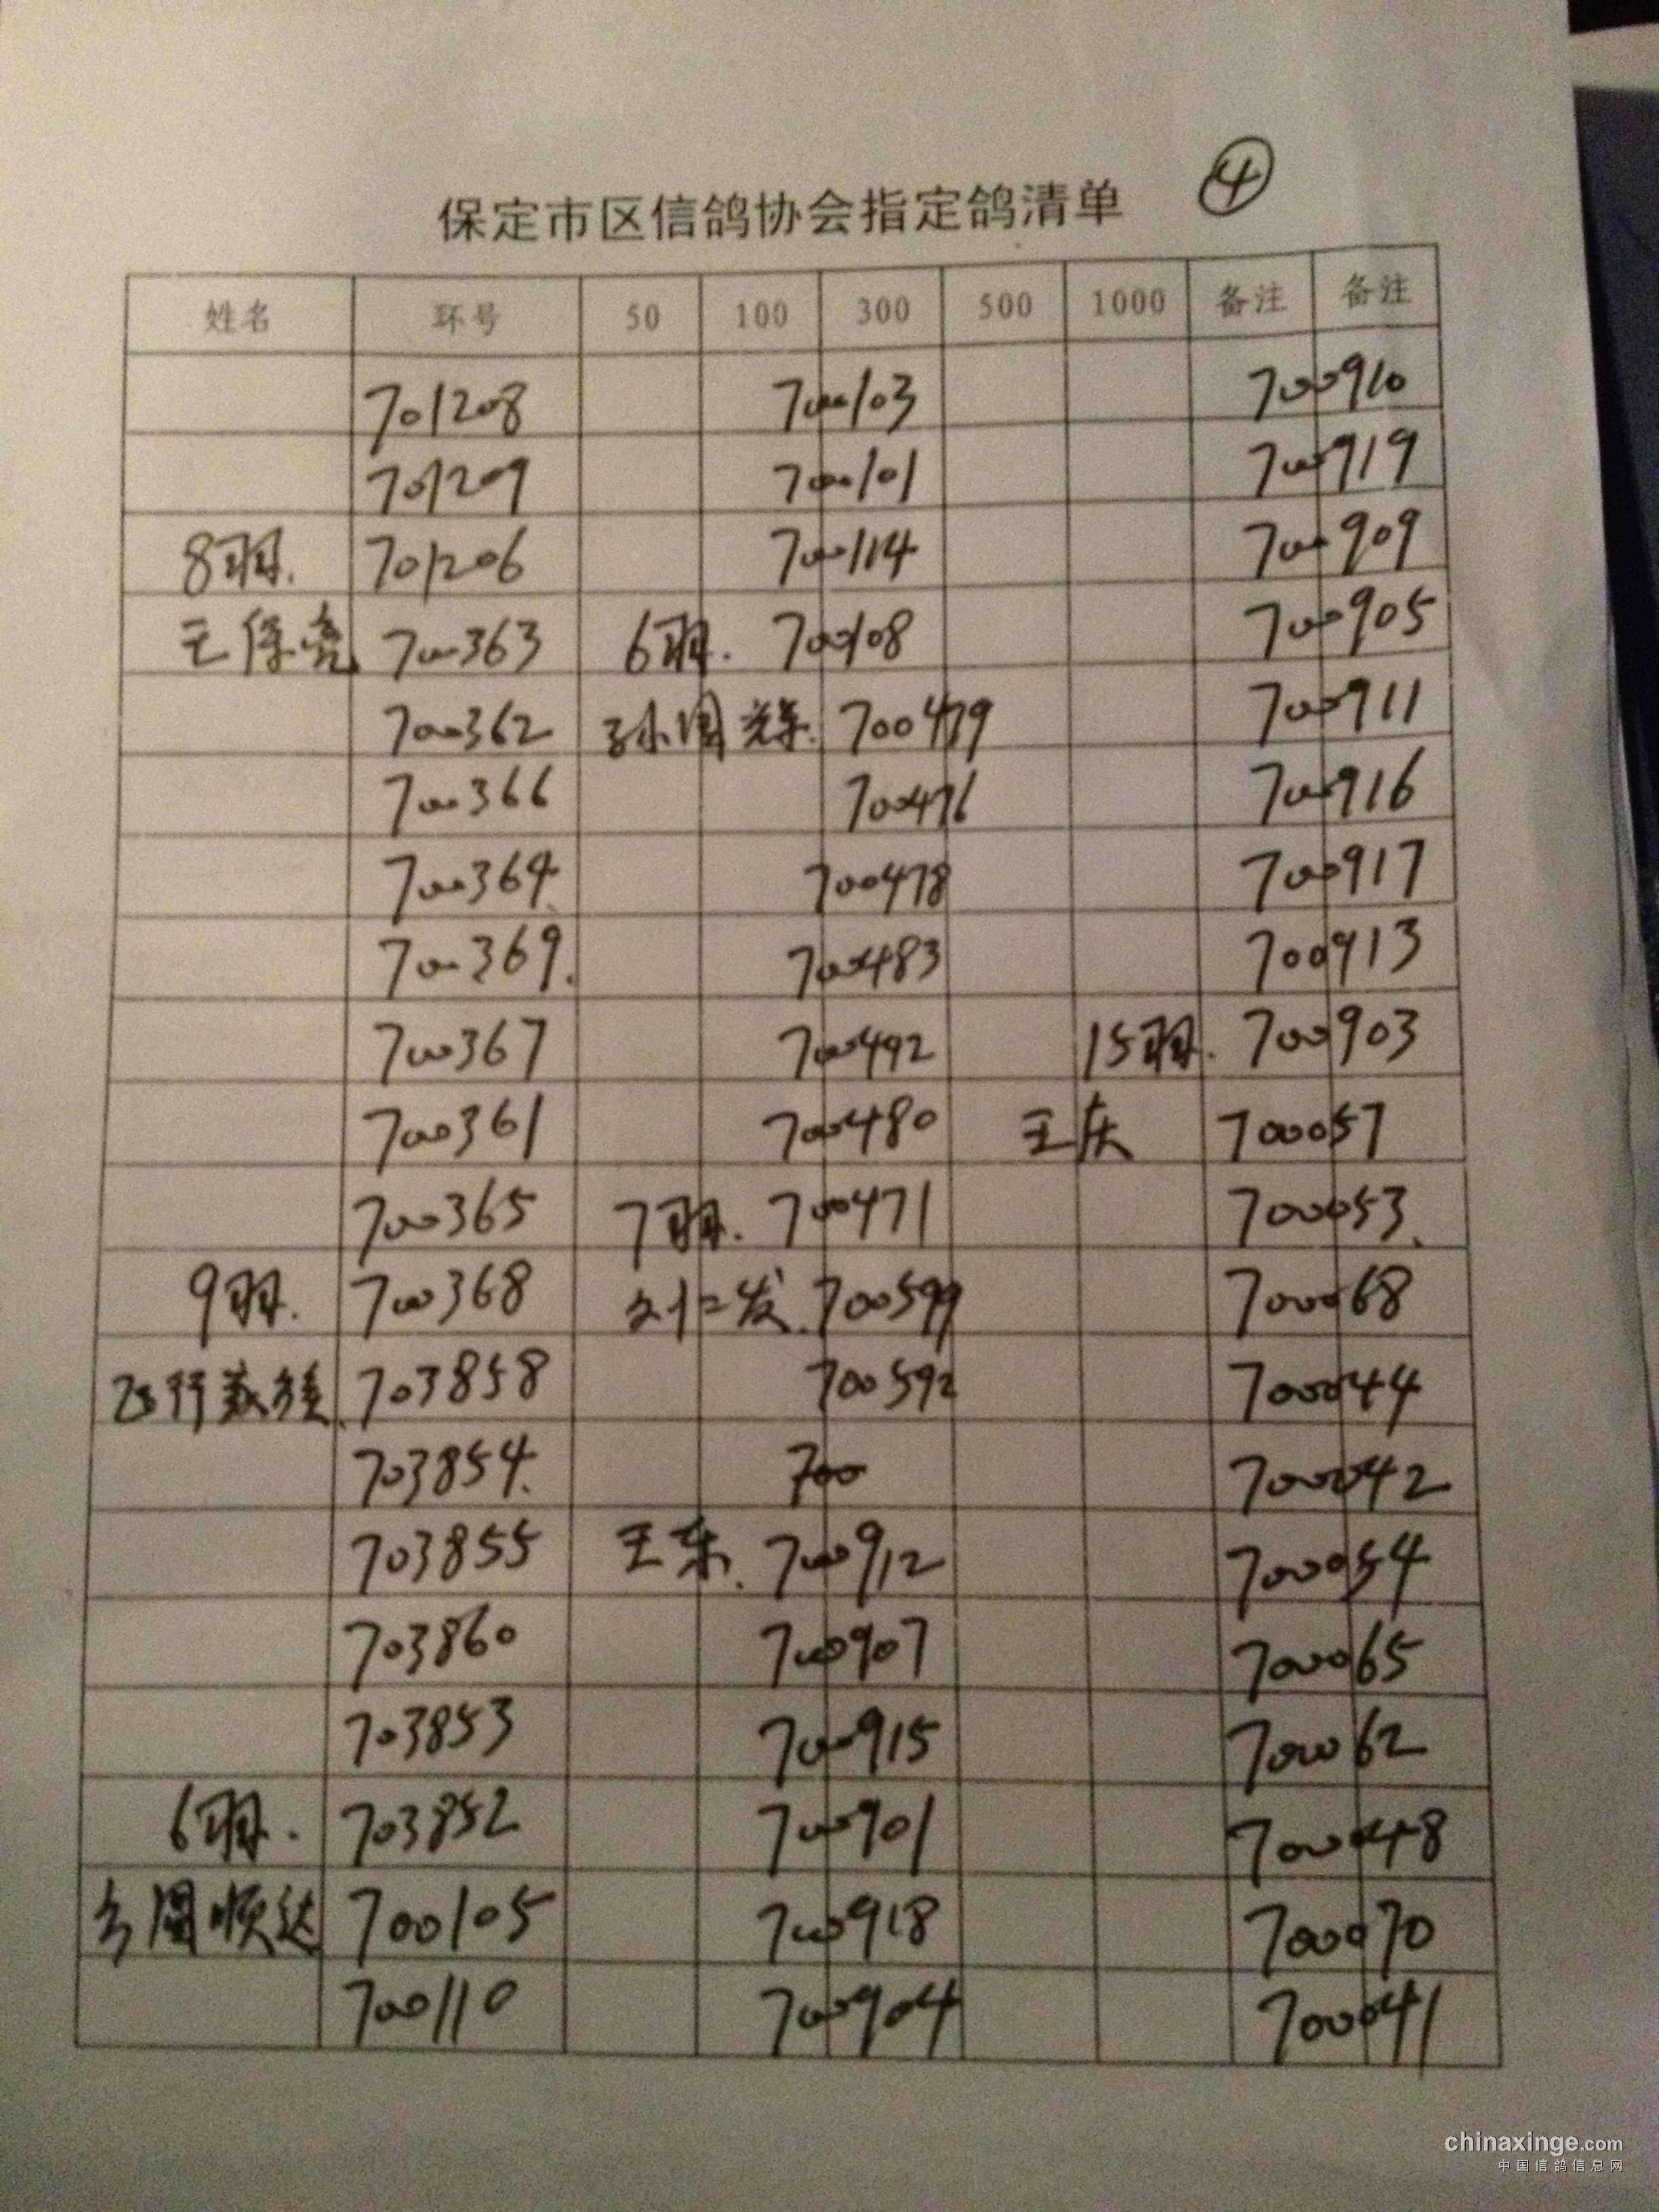 ④
保定市区信鸽协会指定鸽清单
姓名 环号 50 100 300 500 1000 备注 备注
701208 700103 700910
701209 700101 700919
8羽. 701206 700114 700909
王保亮 700363 6羽. 700108 700905
700362 孙国荣. 700479 700911
700366 700476 700916
700364. 700478 700917
700369. 700483 700913
700367 700492 15羽. 700903
700361 700480 王庆 700057
700365 7羽. 700471 700053.
9羽. 700368 刘仁发. 700599 700068
飞行 703858 700592 700044
703854. 700 700042
703855 王东. 700912 700054
703860 700907 700065
703853 700915 700062
6羽. 703852 700901 700048
国顺达 700105 700918 700070
700110 700904 700041
chinaxinge.com
中国信鸽信息网